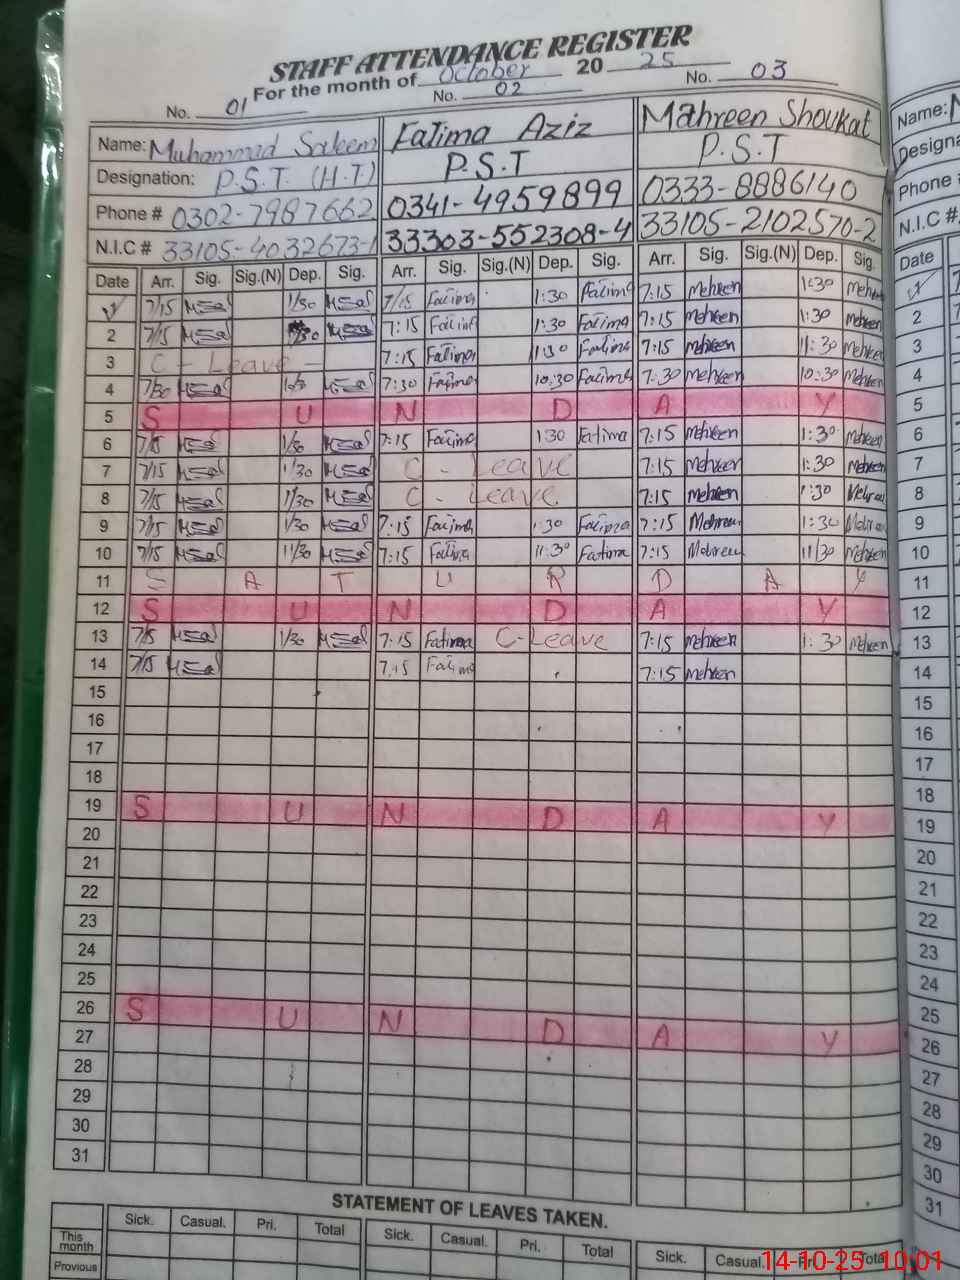 STAFF ATTENDANCE REGISTER
For the month of October 20 25
No. 01 No. 02 No. 03
Name: Muhammad Saleem Fatima Aziz Mahreen Shoukat
Designation: P.S.T. (H.T) P.S.T P.S.T
Phone # 0302-7987662 0341-4959899 0333-8886140
N.I.C # 33105-4032673-1 33303-552308-4 33105-2102570-2
Date Arr. Sig. Sig.(N) Dep. Sig. Arr. Sig. Sig.(N) Dep. Sig. Arr. Sig. Sig.(N) Dep. Sig.
1 7/15 1/30 7/15 Fatima 1:30 Fatima 7:15 Mehreen 1:30 Mehreen
2 7/15 7:15 Fatima 1:30 Fatima 7:15 Mehreen 1:30 Mehreen
3 C - Leave - 7:15 Fatima 11:30 Fatima 7:15 Mehreen 11:30 Mehreen
4 7/30 7:30 Fatima 10:30 Fatima 7:30 Mehreen 10:30 Mehreen
5 S U N D A Y
6 7/15 1/30 7:15 Fatima 1:30 Fatima 7:15 Mehreen 1:30 Mehreen
7 7/15 1/30 C - Leave 7:15 Mehreen 1:30 Mehreen
8 7/15 1/30 C - Leave 7:15 Mehreen 1:30
9 7/15 1/30 7:15 Fatima 1:30 Fatima 7:15 1:30
10 7/15 11/30 7:15 Fatima 11:30 Fatima 7:15 11/30 Mehreen
11 S A T U R D A Y
12 S U N D A Y
13 7/15 1/30 7:15 Fatima C-Leave 7:15 Mehreen 1:30 Mehreen
14 7/15 7:15 Fatima 7:15 Mehreen
15
16
17
18
19 S U N D A Y
20
21
22
23
24
25
26 S U N D A Y
27
28
29
30
31
STATEMENT OF LEAVES TAKEN.
Sick. Casual. Pri. Total Sick. Casual. Pri. Total Sick. Casual. Pri. Total
This month
Provious
14-10-25 10:01
Name:
Designa
Phone #
N.I.C #
Date
2
3
4
5
6
7
8
9
10
11
12
13
14
15
16
17
18
19
20
21
22
23
24
25
26
27
28
29
30
31